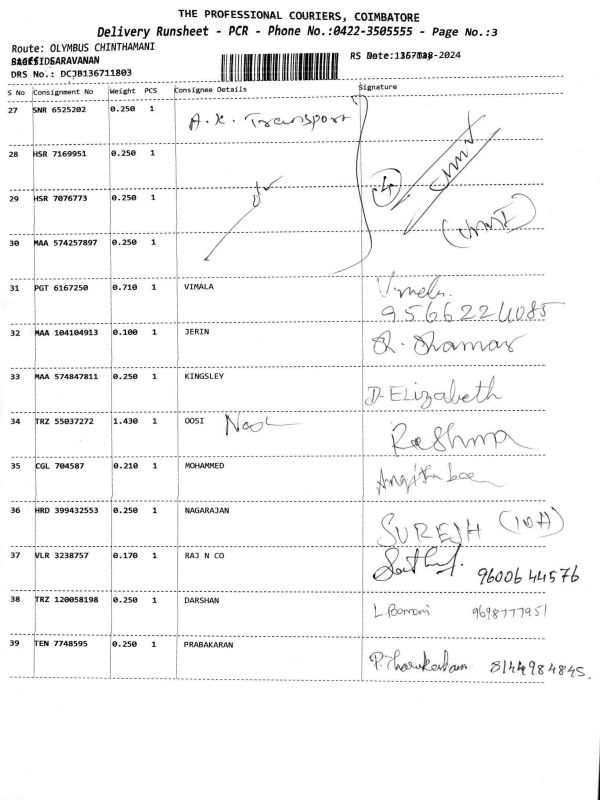 THE PROFESSIONAL COURIERS, COIMBATORE
Delivery Runsheet - PCR - Phone No.:0422-3505555 - Page No.:3
Route: OLYMBUS CHINTHAMANI
SARAVANAN
DRS No.: DCJB136711803
RS Date: -2024
S No Consignment No Weight PCS Consignee Details Signature
27 SNR 6525202 0.250 1 A.K. Transport
28 HSR 7169951 0.250 1
29 HSR 7076773 0.250 1 4
30 MAA 574257897 0.250 1
31 PGT 6167250 0.710 1 VIMALA Vimala
9566224085
32 MAA 104104913 0.100 1 JERIN
33 MAA 574847811 0.250 1 KINGSLEY D. Elizabeth
34 TRZ 55037272 1.430 1 OOSI Reshma
35 CGL 704587 0.210 1 MOHAMMED
36 HRD 399432553 0.250 1 NAGARAJAN SURESH (10A)
37 VLR 3238757 0.170 1 RAJ N CO 9600644576
38 TRZ 120058198 0.250 1 DARSHAN 9698777951
39 TEN 7748595 0.250 1 PRABAKARAN 8144984845.